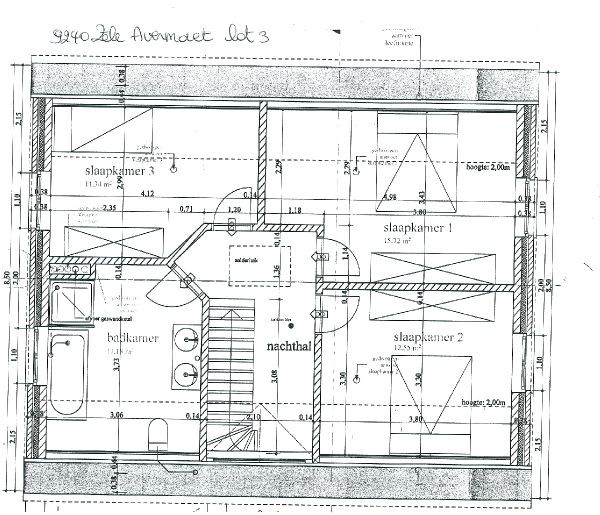 9240 Zele Avermaet lot 3
0,38
2,15
2,15
slaapkamer 3
11.34 m²
2,99
2,29
2,79
hoogte: 2,00m
0,38
4,12
0,14
4,98
3,43
0,38
1,10
1,10
0,38
2,35
0,71
1,20
1,18
3,80
slaapkamer 1
15.72 m²
0,14
1,14
zolderluik
1,36
0,14
8,50
2,00
2,00
8,50
0,14
0,14
badkamer
nachthal
slaapkamer 2
12.55 m²
1,10
1,10
3,73
3,08
3,30
3,30
hoogte: 2,00m
3,06
0,14
2,10
0,14
3,80
2,15
2,15
0,44
0,38